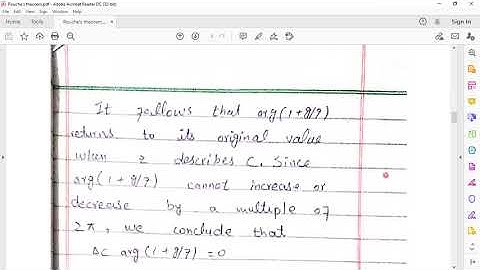 Rouche's theorem.pdf - Adobe Acrobat Reader DC (32-bit)
File Edit View Sign Window Help
Home Tools Rouche's theorem.... Sign In
It follows that arg(1+g/f)
returns to its original value
when z describes C. Since
arg(1+g/f) cannot increase or
decrease by a multiple of
2π, we conclude that
ΔC arg(1+g/f) = 0